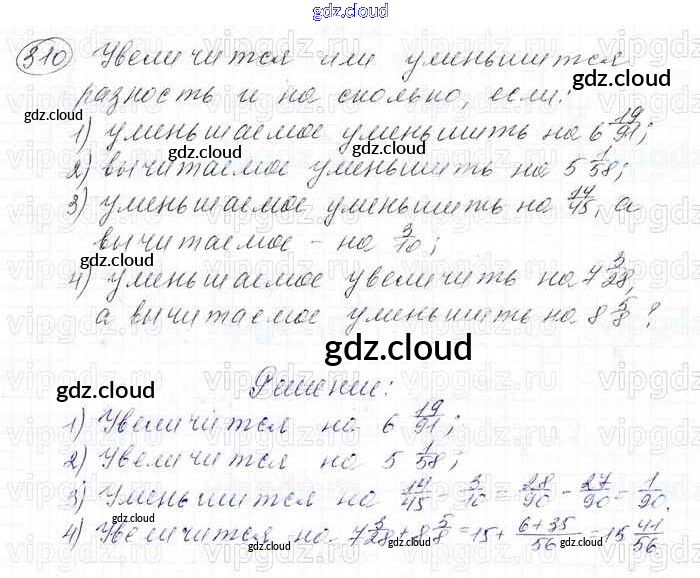 gdz.cloud
310 Увеличится или уменьшится
gdz.cloud
разность и на сколько, если:
1) уменьшаемое уменьшить на 6 19/91;
gdz.cloud
2) вычитаемое уменьшить на 5 1/58;
3) уменьшаемое уменьшить на 14/45, а
вычитаемое - на 3/10;
4) уменьшаемое увеличить на 7 3/28,
а вычитаемое уменьшить на 8 5/8?
gdz.cloud
gdz.cloud
Решение:
1) Увеличится на 6 19/91;
gdz.cloud
2) Увеличится на 5 1/58;
3) Уменьшится на 14/45 - 3/10 = 28/90 - 27/90 = 1/90.
4) Увеличится на 7 3/28 + 8 5/8 = 15 + (6+35)/56 = 15 41/56.
gdz.cloud gdz.cloud gdz.cloud